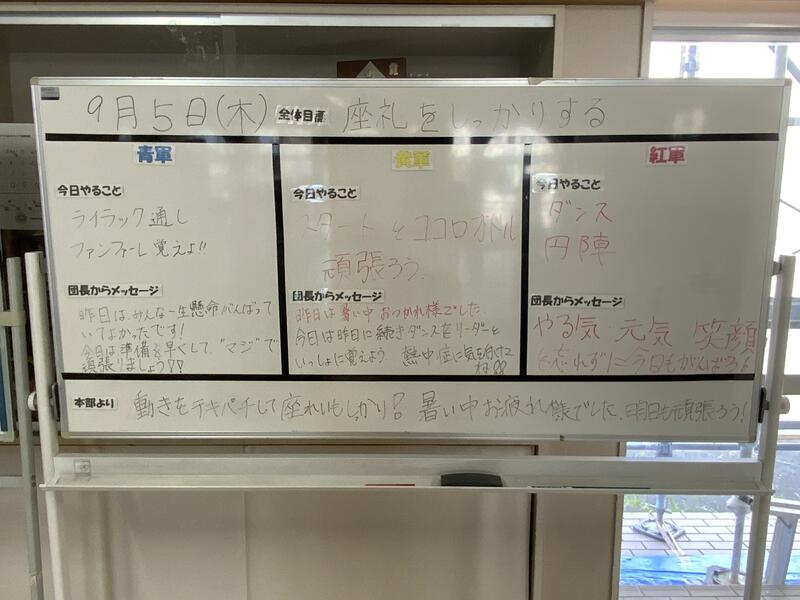 9月5日(木) 全体目標 座礼をしっかりする
青軍
今日やること
ライラック通し
ファンファーレ覚えよ!!
団長からメッセージ
昨日は、みんな一生懸命がんばって
いてよかったです!
今日は準備を早くして"マジ"で
頑張りましょう!!
黄軍
今日やること
スタートとココロオドル
頑張ろう。
団長からメッセージ
昨日は暑い中おつかれ様でした
今日は昨日に続きダンスをリーダーと
いっしょに覚えよう 熱中症に気を付けて
ね!!
紅軍
今日やること
ダンス
円陣
団長からメッセージ
やる気 元気 笑顔
を忘れずに今日もがんばろう!
本部より 動きをテキパキして座れいもしっかり! 暑い中お疲れ様でした、明日も頑張ろう!